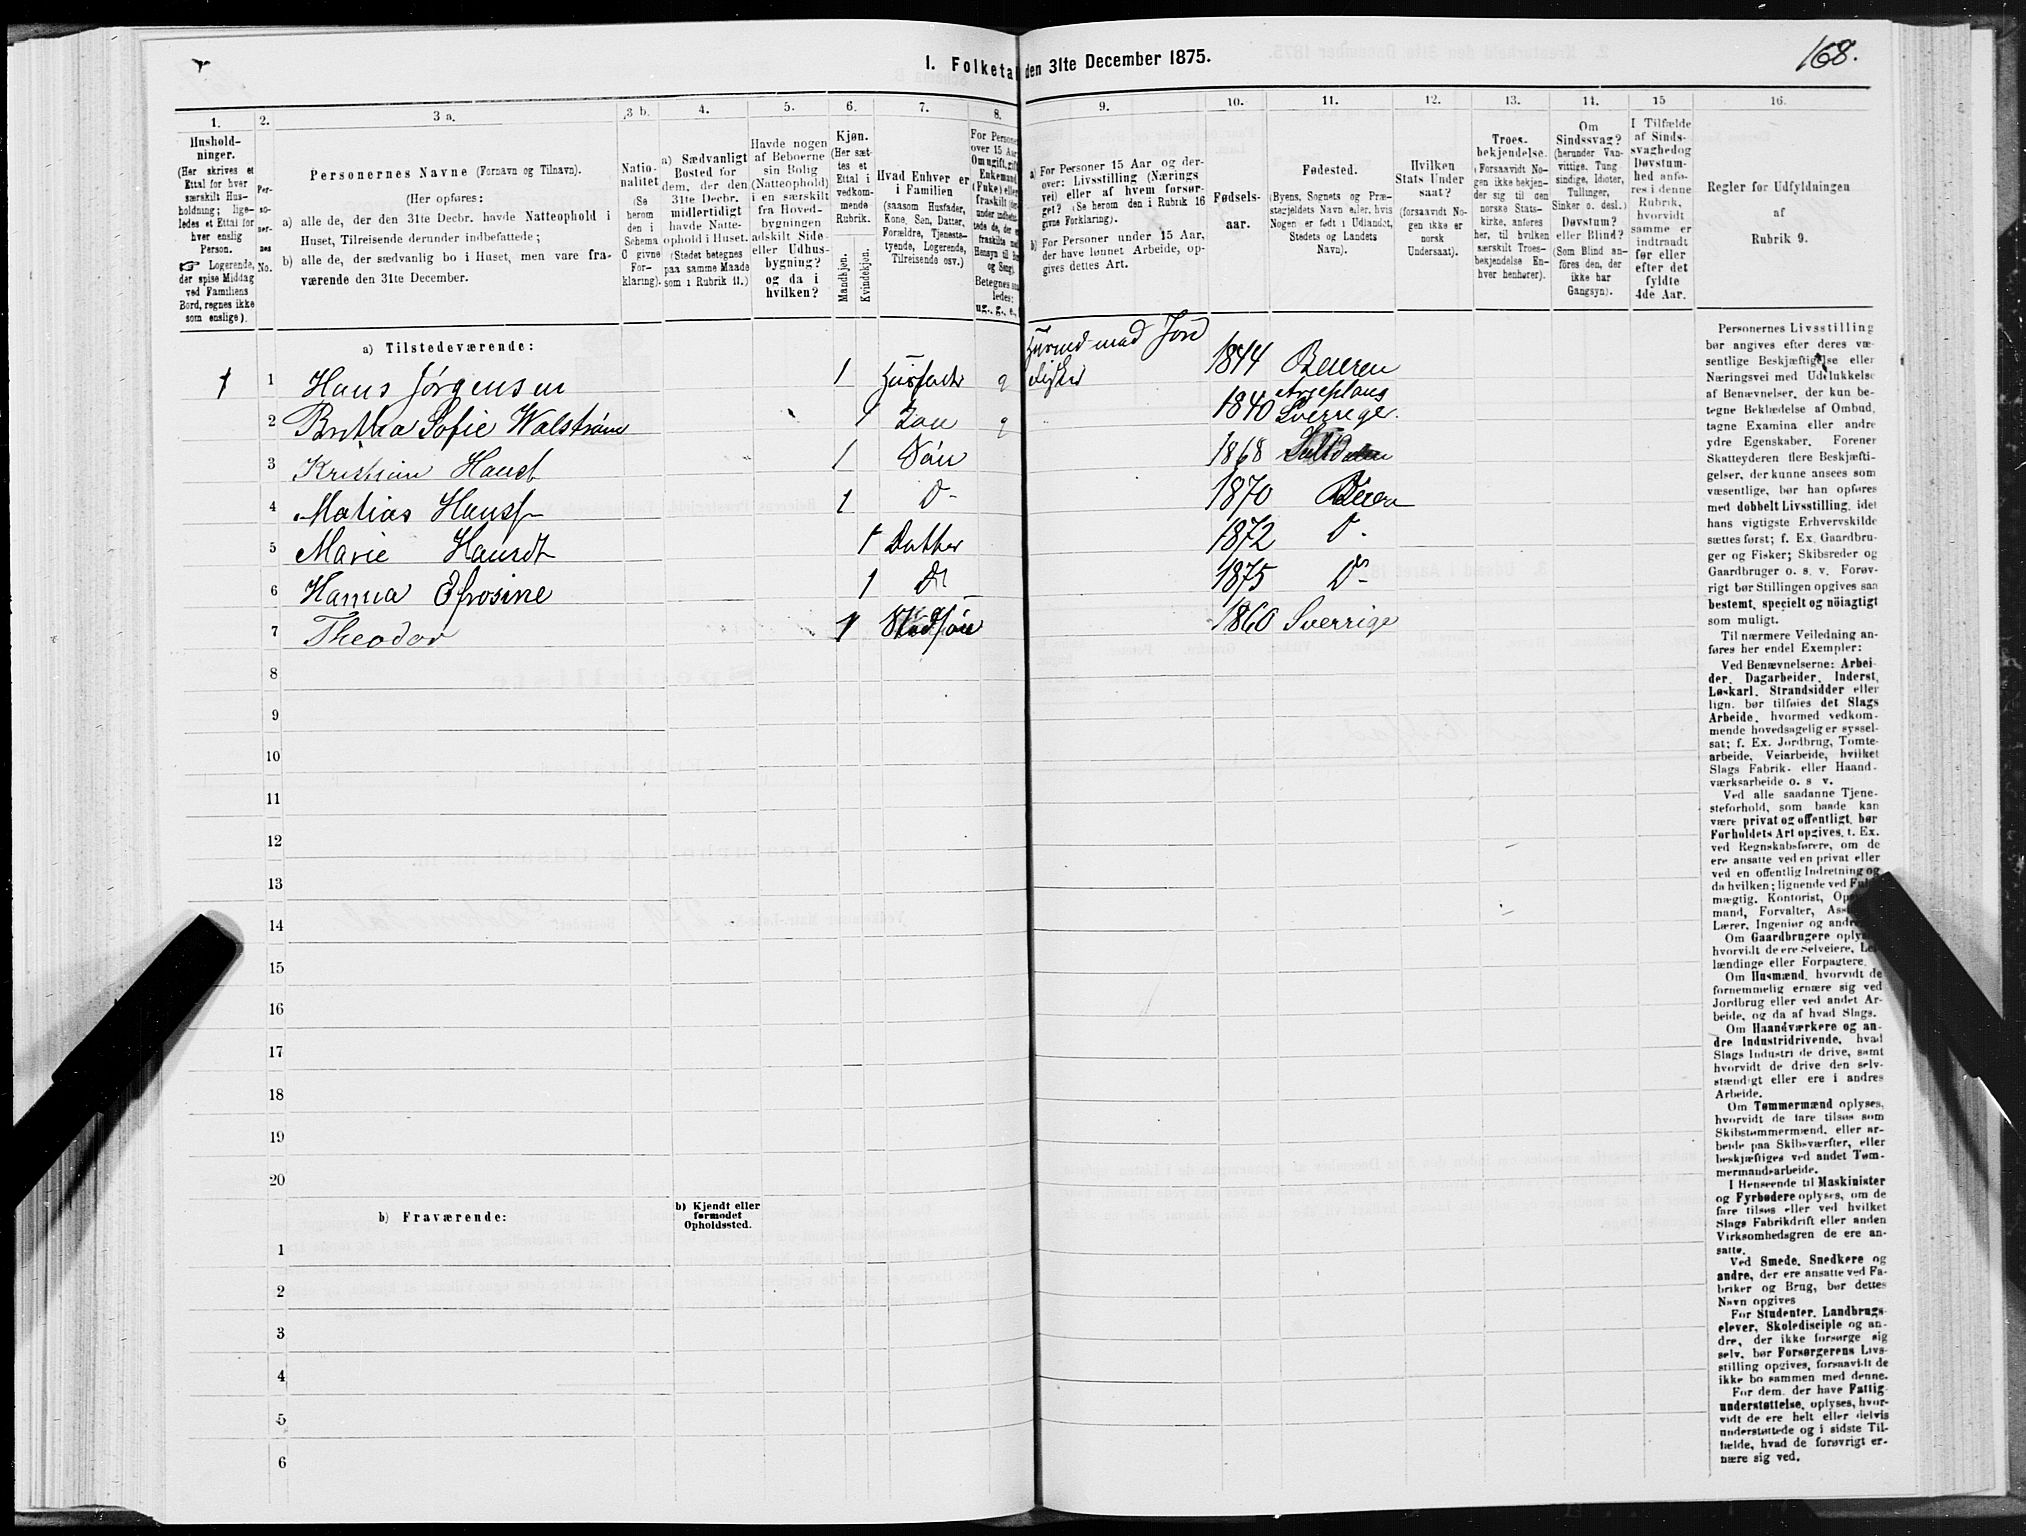 168.
1. Folketal den 31te December 1875.
1. 2. 3 a. 3 b. 4. 5. 6. 7. 8. 9. 10. 11. 12. 13. 14. 15 16.
Hushold-
ninger.
(Her skrives et
Ettal for hver
særskilt Hus-
holdning; lige-
ledes et Ettal for
hver enslig
Person.
☞ Logerende,
der spise Middag
ved Familiens
Bord, regnes ikke
som enslige).
Per-
so-
ner-
nes
No.
Personernes Navne (Fornavn og Tilnavn).
(Her opføres:
a) alle de, der den 31te Decbr. havde Natteophold i
Huset, Tilreisende derunder indbefattede;
b) alle de, der sædvanlig bo i Huset, men vare fra-
værende den 31te December.
Natio-
nalitet
(Se
herom
den i
Schema
C givne
For-
klaring).
a) Sædvanligt
Bosted for
dem, der den
31te Decbr.
midlertidigt
havde Natte-
ophold i Huset.
(Stedet betegnes
paa samme Maade
som i Rubrik 11.)
Havde nogen
af Beboerne
sin Bolig
(Natteophold)
i en særskilt
fra Hoved-
bygningen
adskilt Side-
eller Udhus-
bygning?
og da i
hvilken?
Kjøn.
(Her sæt-
tes et
Ettal i
vedkom-
mende
Rubrik.
Mandkjøn.
Kvindekjøn.
Hvad Enhver er
i Familien
(saasom Husfader,
Kone, Søn, Datter,
Forældre, Tjeneste-
tyende, Logerende,
Tilreisende osv.)
For Personer
over 15 Aar
Om ugift, gift,
Enkemand
(Enke) eller
fraskilt
Betegnes saa-
ledes:
ug., g., e.,
a) For Personer 15 Aar og der-
over: Livsstilling (Nærings
vei) eller af hvem forsør-
get? (Se herom den i Rubrik 16
givne Forklaring).
b) For Personer under 15 Aar,
der have lønnet Arbeide, op-
gives dettes Art.
Fødsels-
aar.
Fødested.
(Byens, Sognets og Præ-
stegjeldets Navn eller, hvis
Nogen er født i Udlandet,
Stedets og Landets
Navn).
Hvilken
Stats Under
saat?
(forsaavidt No-
gen ikke er
norsk
Undersaat).
Troes-
bekjendelse.
(Forsaavidt No-
gen ikke bekjen-
der sig til den
norske Stats-
kirke, anføres
her, til hvilken
særskilt Troes-
bekjendelse En-
hver henhører).
Om
Sindssvag?
(herunder Van-
vittige, Tung
sindige, Idioter,
Tullinger,
Sinker o. desl.)
Døvstum?
eller Blind?
(Som Blind an-
føres den, der
ikke har
Gangsyn).
I Tilfælde
af Sinds-
svaghed og
Døvstum-
hed anfø-
res i denne
Rubrik,
hvorvidt
samme er
indtraadt
før eller
efter det
fyldte
4de Aar.
Regler for Udfyldningen
af
Rubrik 9.
a) Tilstedeværende:
Husmd med Jord
1 1 Hans Jørgensen 1 Husfader g Fisker 1844 Beieren
Arjeplaug
2 Britha Sofie Walstrøm 1 Kone g 1840 Sverrige.
3 Kristian Hanss 1 Søn 1868
4 Matias Hanss 1 D- 1870 Beiern
5 Marie Hansdt 1 Datter 1872 D-
6 Hanna Efrosine 1 D- 1875 D-
7 Theodor 1 Stedsøn 1860 Sverrige
8
9
10
11
12
13
14
15
16
17
18
19
20
b) Fraværende:
b) Kjendt eller
formodet
Opholdssted.
1
2
3
4
5
6
Personernes Livsstilling
bør angives efter deres væ-
sentlige Beskjæftigelse eller
Næringsvei med Udelukkelse
af Benævnelser, der kun be-
tegne Beklædelse af Ombud,
tagne Examina eller andre
ydre Egenskaber. Forener
Skatteyderen flere Beskjæfti-
gelser, der kunne ansees som
væsentlige, bør han opføres
med dobbelt Livsstilling, idet
hans vigtigste Erhvervskilde
sættes først; f. Ex. Gaardbru-
ger og Fisker; Skibsreder og
Gaardbruger o. s. v. Forøv-
rigt bør Stillingen opgives saa
bestemt, specielt og nøiagtigt
som muligt.
Til nærmere Veiledning an-
føres her endel Exempler:
Ved Benævnelserne: Arbei-
der, Dagarbeider, Inderst,
Løskarl, Strandsidder eller
lign. bør tilføies det Slags
Arbeide, hvormed vedkom-
mende hovedsagelig er syssel-
sat; f. Ex. Jordbrug, Tomte-
arbeide, Veiarbeide, hvilket
Slags Fabrik- eller Haand-
værksarbeide o. s v.
Ved alle saadanne Tjene-
steforhold, som baade kan
være privat og offentligt, bør
Forholdets Art opgives, t. Ex.
ved Regnskabsførere, om de
ere ansatte ved en privat eller
ved en offentlig Indretning og
da hvilken; lignende ved Fuld-
mægtig, Kontorist,
mand, Forvalter,
Lærer, Ingeniør og andre
Om Gaardbrugere oplyses,
hvorvidt de ere Selveiere, Lei-
lændinge eller Forpagtere.
Om Husmænd, hvorvidt de
fornemmelig ernære sig ved
Jordbrug eller ved andet Ar-
beide, og da af hvad Slags.
Om Haandværkere og an-
dre Industridrivende, hvad
Slags Industri de drive, samt
hvorvidt de drive den selv-
stændigt eller ere i andres
Arbeide.
Om Tømmermænd oplyses,
hvorvidt de fare tilsøs som
Skibstømmermænd, eller ar-
beide paa Skibsværfter, eller
beskjæftiges ved andet Tøm-
mermandsarbeide.
I Henseende til Maskinister
og Fyrbødere oplyses, om de
fare tilsøs eller ved hvilket
Slags Fabrikdrift eller anden
Virksomhedsgren de ere an-
satte.
Ved Smede, Snedkere og
andre, der ere ansatte ved Fa-
briker og Brug, bør dettes
Navn opgives
For Studenter, Landbrugs-
elever, Skoledisciple og an-
dre, der ikke forsørge sig
selv, bør Forsørgerens Livs-
stilling opgives, forsaavidt de
ikke bo sammen med denne.
For dem, der have Fattig-
understøttelse, oplyses, hvor-
vidt de ere helt eller delvis
understøttede og i sidste Til-
fælde, hvad de forøvrigt er-
nære sig ved.